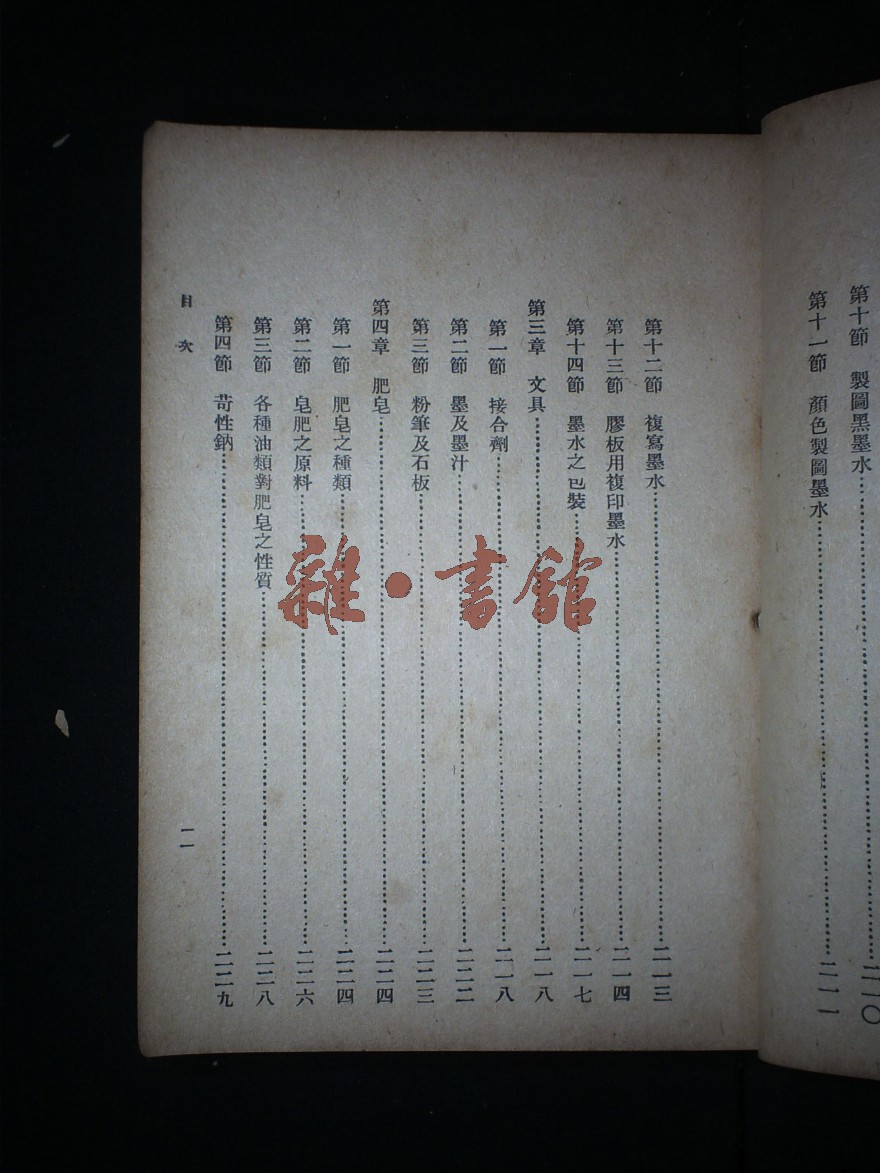 第十節　製圖黑墨水……二一〇
第十一節　顏色製圖墨水……二一一
第十二節　複寫墨水……二一三
第十三節　膠板用複印墨水……二一四
第十四節　墨水之包裝……二一七
第三章　文具……二一八
第一節　接合劑……二一八
第二節　墨及墨汁……二二二
第三節　粉筆及石板……二二三
第四章　肥皂……二二四
第一節　肥皂之種類……二二四
第二節　皂肥之原料……二二六
第三節　各種油類對肥皂之性質……二二八
第四節　苛性鈉……二二九
目次　一一
雜·書館